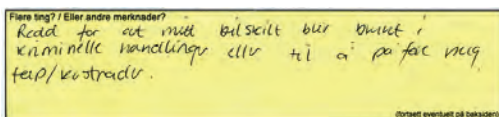 Flere ting? / Eller andre merknader?
Redd for at mitt bilskilt blir brukt i
kriminelle handlinger eller til å påføre meg
tap/kostnader.
(fortsett eventuelt på baksiden)